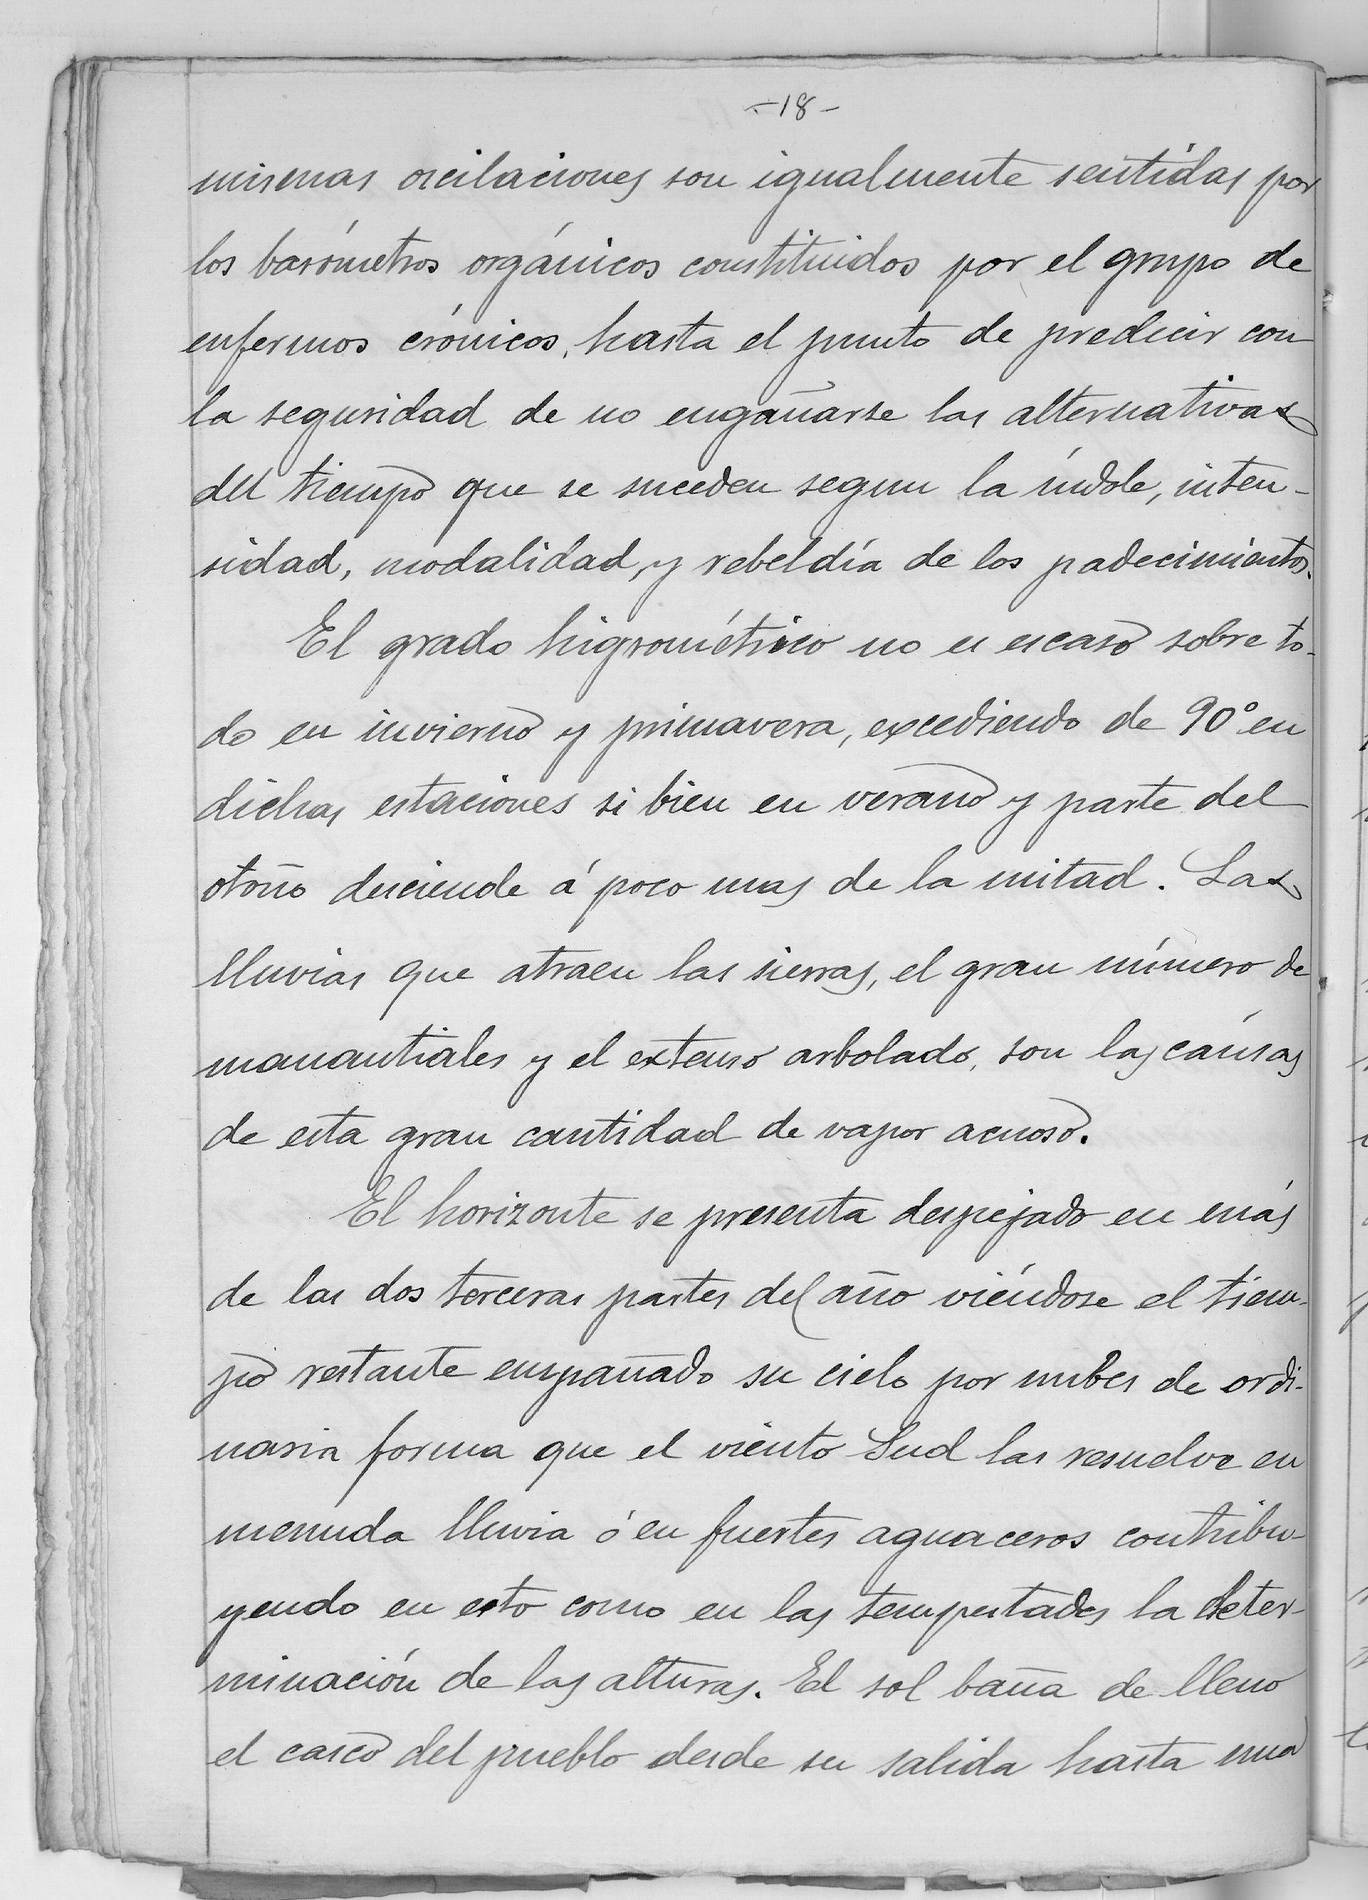 -18-
mismas oscilaciones son igualmente sentidas por
los barómetros orgánicos constituidos por el grupo de
enfermos crónicos, hasta el punto de predecir con
la seguridad de no engañarse las alternativas
del tiempo que se suceden segun la índole, inten-
sidad, modalidad, y rebeldía de los padecimientos.
El grado higrométrico no es escaso sobre to-
do en invierno y primavera, excediendo de 90° en
dichas estaciones si bien en verano y parte del
otoño desciende á poco mas de la mitad. Las
lluvias que atraen las sierras, el gran número de
manantiales y el extenso arbolado, son las cáusas
de esta gran cantidad de vapor acuoso.
El horizonte se presenta despejado en más
de las dos terceras partes del año viéndose el tiem-
po restante empañado su cielo por nubes de ordi-
naria forma que el viento Sud las resuelve en
menuda lluvia ó en fuertes aguaceros contribu-
yendo en esto como en las tempestades la deter-
minación de las alturas. El sol baña de lleno
el casco del pueblo desde su salida hasta una